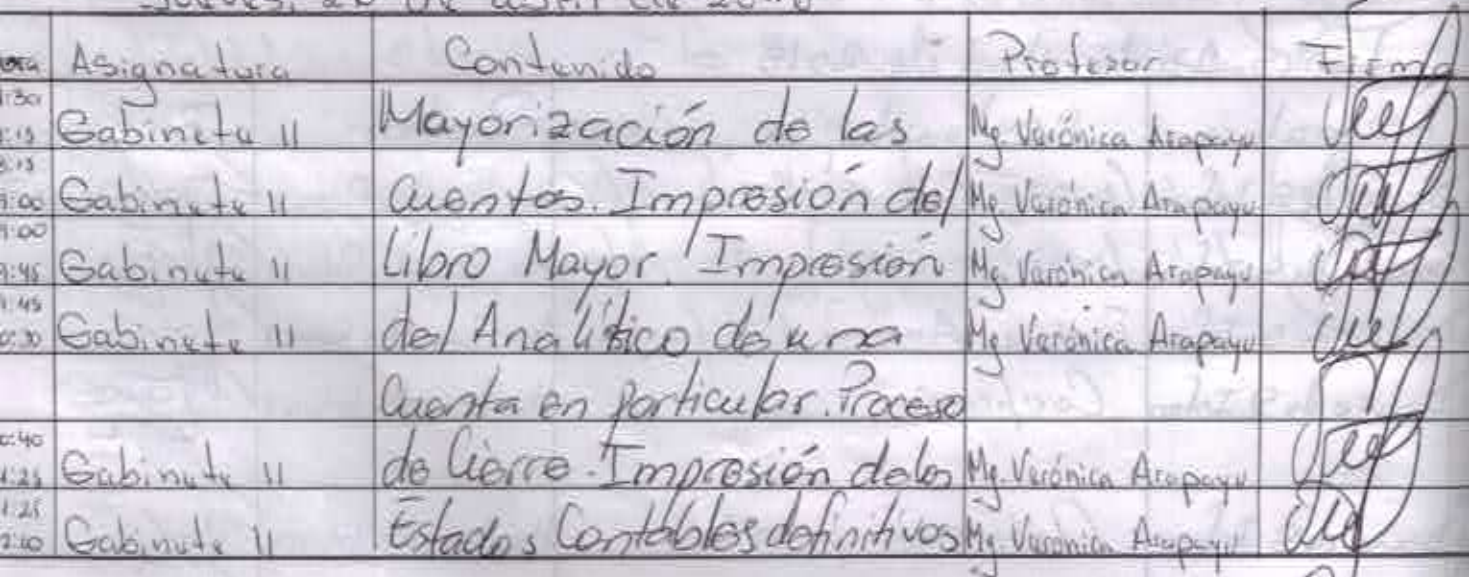 Asignatura Contenido Profesor Firma
Gabinete II Mayorización de las Mg. Verónica Arapayu
8:15
9:00 Gabinete II Cuentas. Impresión del Mg. Verónica Arapayu
9:00
9:45 Gabinete II Libro Mayor. Impresión Mg. Verónica Arapayu
9:45
Gabinete II del Analítico de una Mg. Verónica Arapayu
Cuenta en particular. Proceso
Gabinete II de Cierre. Impresión de los Mg. Verónica Arapayu
Gabinete II Estados Contables definitivos Mg. Verónica Arapayu